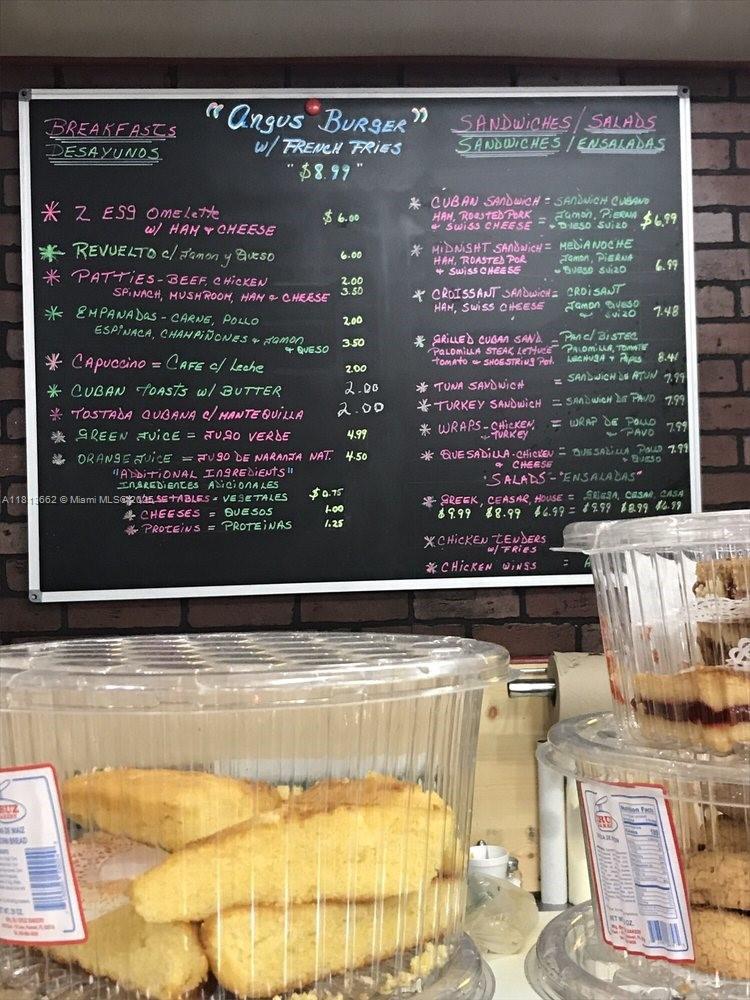 "Angus Burger"
w/ French Fries
"$8.99"
Breakfasts
Desayunos
* 2 Egg Omelette $6.00
w/ Ham & Cheese
* Revuelto c/ Jamon y Queso 6.00
* Patties - Beef, Chicken 2.00
Spinach, Mushroom, Ham & Cheese 3.50
* Empanadas - Carne, Pollo 2.00
Espinaca, Champiñones & Jamon & Queso 3.50
* Capuccino = Cafe c/ Leche 2.00
* Cuban Toasts w/ Butter 2.00
* Tostada Cubana c/ Mantequilla 2.00
* Green Juice = Jugo Verde 4.99
* Orange Juice = Jugo de Naranja Nat. 4.50
"Additional Ingredients"
Ingredientes Adicionales
* Vegetables - Vegetales $0.75
* Cheeses = Quesos 1.00
* Proteins = Proteinas 1.25
Sandwiches / Salads
Sandwiches / Ensaladas
* Cuban Sandwich = Sandwich Cubano
Ham, Roasted Pork = Jamon, Pierna
& Swiss Cheese & Queso Suizo $6.99
* Midnight Sandwich = Medianoche
Ham, Roasted Por Jamon, Pierna
& Swiss Cheese & Queso Suizo 6.99
* Croissant Sandwich = Croisant
Ham, Swiss Cheese Jamon Queso
& Suizo 7.48
* Grilled Cuban Sand. = Pan c/ Bistec
Palomilla Steak, Lettuce Palomilla, Tomate
Tomato & Shoestring Pot. Lechuga & Papas 8.41
* Tuna Sandwich = Sandwich de Atun 7.99
* Turkey Sandwich = Sandwich de Pavo 7.99
* Wraps - Chicken, = Wrap de Pollo
Turkey & Pavo 7.99
* Quesadilla - Chicken = Quesadilla Pollo 7.99
& Cheese Queso
"Salads - "Ensaladas"
* Greek, Ceasar, House = Griega, Cesar, Casa
$9.99 $8.99 $6.99 = $9.99 $8.99 $6.99
* Chicken Tenders
w/ Fries
* Chicken Wings =
© Miami MLS
Nutrition Facts